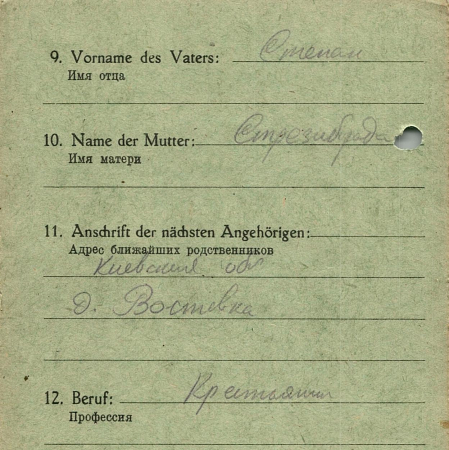 9. Vorname des Vaters: Степан
Имя отца
10. Name der Mutter: Стрезибрада
Имя матери
11. Anschrift der nächsten Angehörigen:
Адрес ближайших родственников
Киевская обл
д. Востевка
12. Beruf: Крестьянин
Профессия